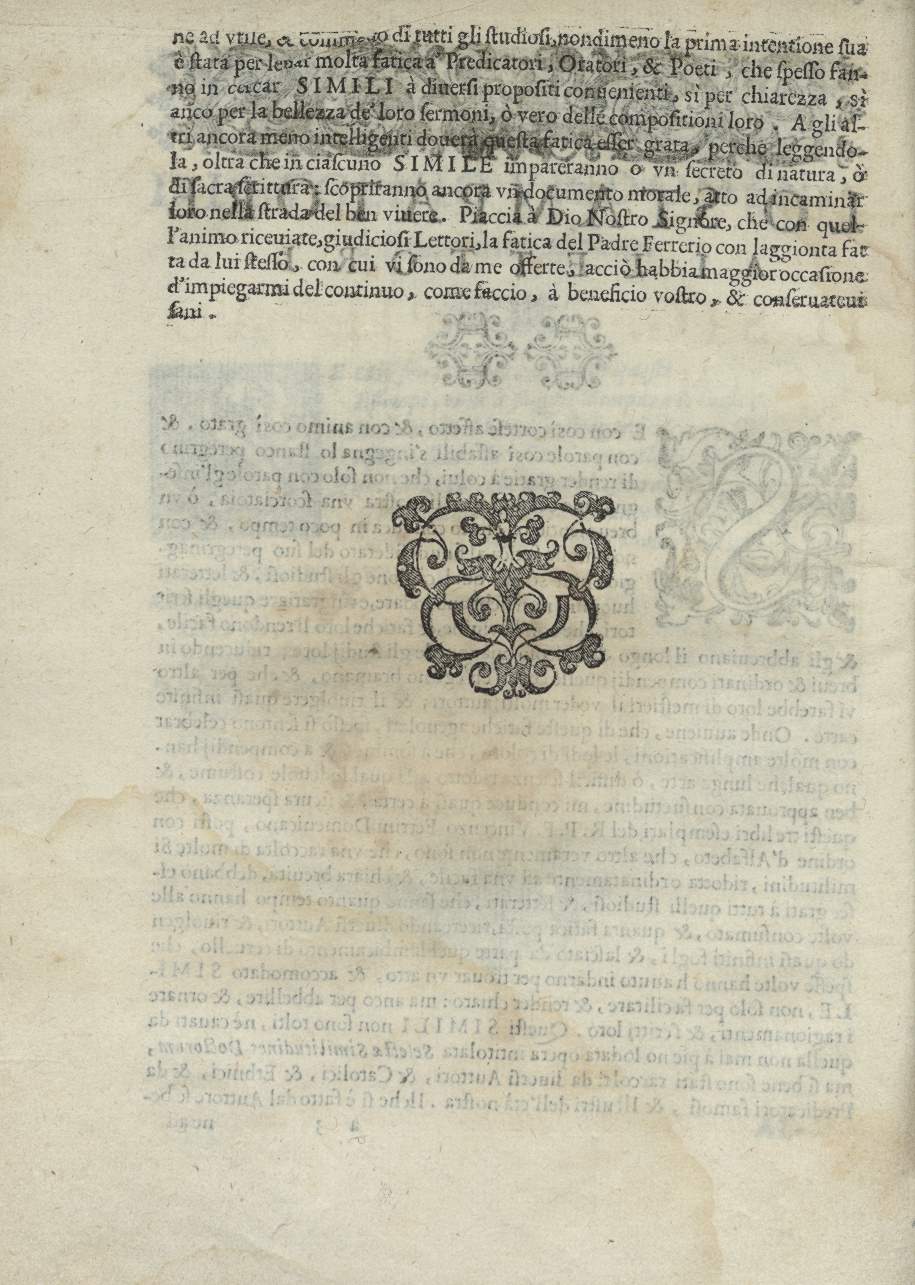 ne ad vtile, & commodo di tutti gli ſtudioſi, nondimeno la prima intentione ſua
è ſtata per leuar molta fatica a' Predicatori, Oratori, & Poeti, che ſpeſſo fan-
no in cercar SIMILI à diuerſi propoſiti conuenienti, sì per chiarezza, sì
anco per la bellezza de' loro ſermoni, ò vero delle compoſitioni loro. A gli al-
tri ancora meno intelligenti douerà queſta fatica eſſer grata, perche leggendo-
la, oltra che in ciaſcuno SIMILE impareranno o vn ſecreto di natura, ò
di ſacra ſcrittura: ſcopriranno ancora vn documento morale, atto ad incaminar
loro nella ſtrada del ben viuere. Piaccia à Dio Noſtro Signore, che con quel-
l'animo riceuiate, giudicioſi Lettori, la fatica del Padre Ferrerio con l'aggionta fat
ta da lui ſteſſo, con cui vi ſono da me offerte, acciò habbia maggior occaſione
d'impiegarmi del continuo, come faccio, à beneficio voſtro, & conſeruateui
ſani.